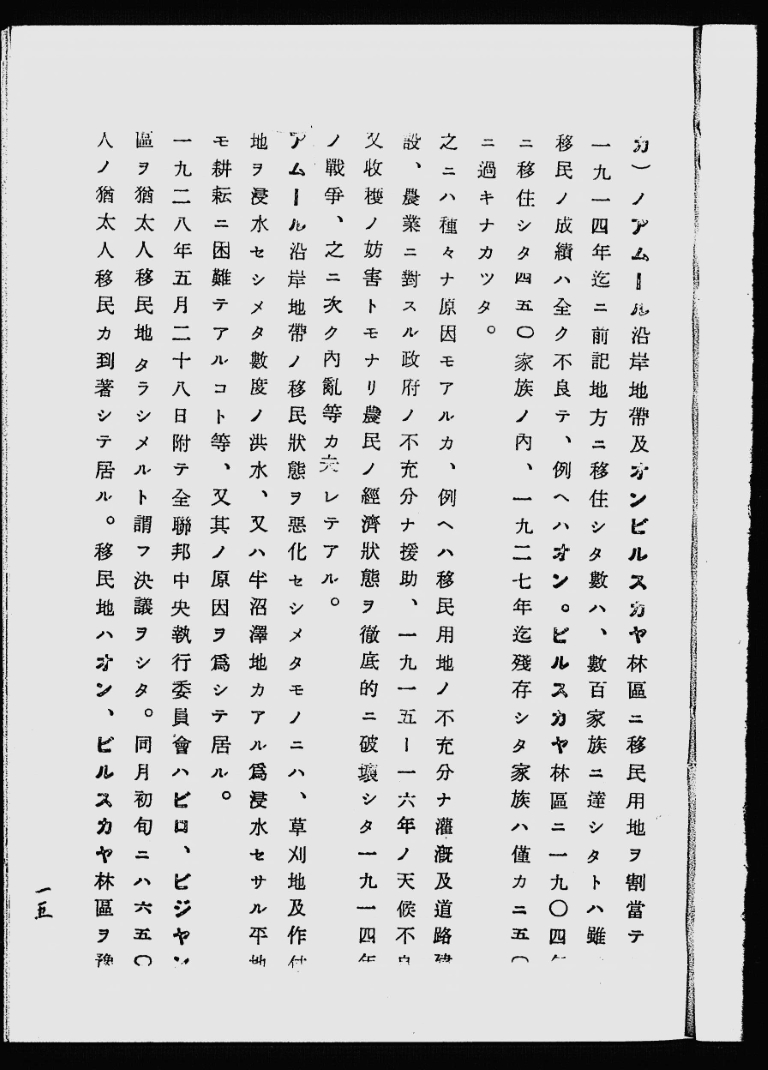 カ）ノアムール沿岸地帶及オンビルスカヤ林區ニ移民用地ヲ割當テ
一九一四年迄ニ前記地方ニ移住シタ數ハ、數百家族ニ達シタトハ雖
移民ノ成績ハ全ク不良テ、例ヘハオン。ビルスカヤ林區ニ一九〇四年
ニ移住シタ四五〇家族ノ內、一九二七年迄殘存シタ家族ハ僅カニ五〇
ニ過キナカツタ。
之ニハ種々ナ原因モアルカ、例ヘハ移民用地ノ不充分ナ灌漑及道路建
設、農業ニ對スル政府ノ不充分ナ援助、一九一五ー一六年ノ天候不良
又收穫ノ妨害トモナリ農民ノ經濟狀態ヲ徹底的ニ破壞シタ一九一四年
ノ戰爭、之ニ次ク內亂等カ夫レテアル。
アムール沿岸地帶ノ移民狀態ヲ惡化セシメタモノニハ、草刈地及作付
地ヲ浸水セシメタ數度ノ洪水、又ハ半沼澤地カアル爲浸水セサル平地
モ耕耘ニ困難テアルコト等、又其ノ原因ヲ爲シテ居ル。
一九二八年五月二十八日附テ全聯邦中央執行委員會ハビロ、ビジヤン
區ヲ猶太人移民地タラシメルト謂フ決議ヲシタ。同月初旬ニハ六五〇
人ノ猶太人移民カ到著シテ居ル。移民地ハオン、ビルスカヤ林區ヲ豫
一五